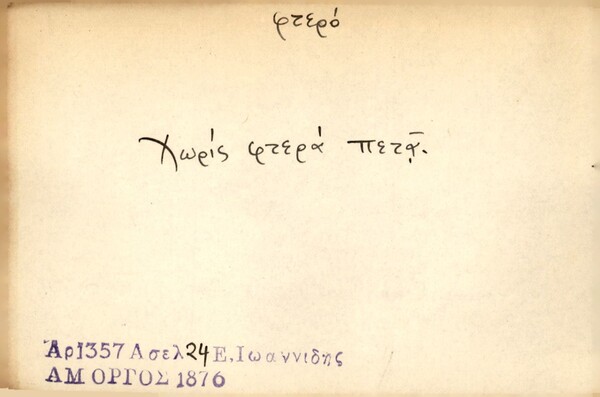 φτερό
Χωρίς φτερά πετᾷ.
Αρ1357 Α σελ24 Ε. Ιωαννιδης
ΑΜΟΡΓΟΣ 1876